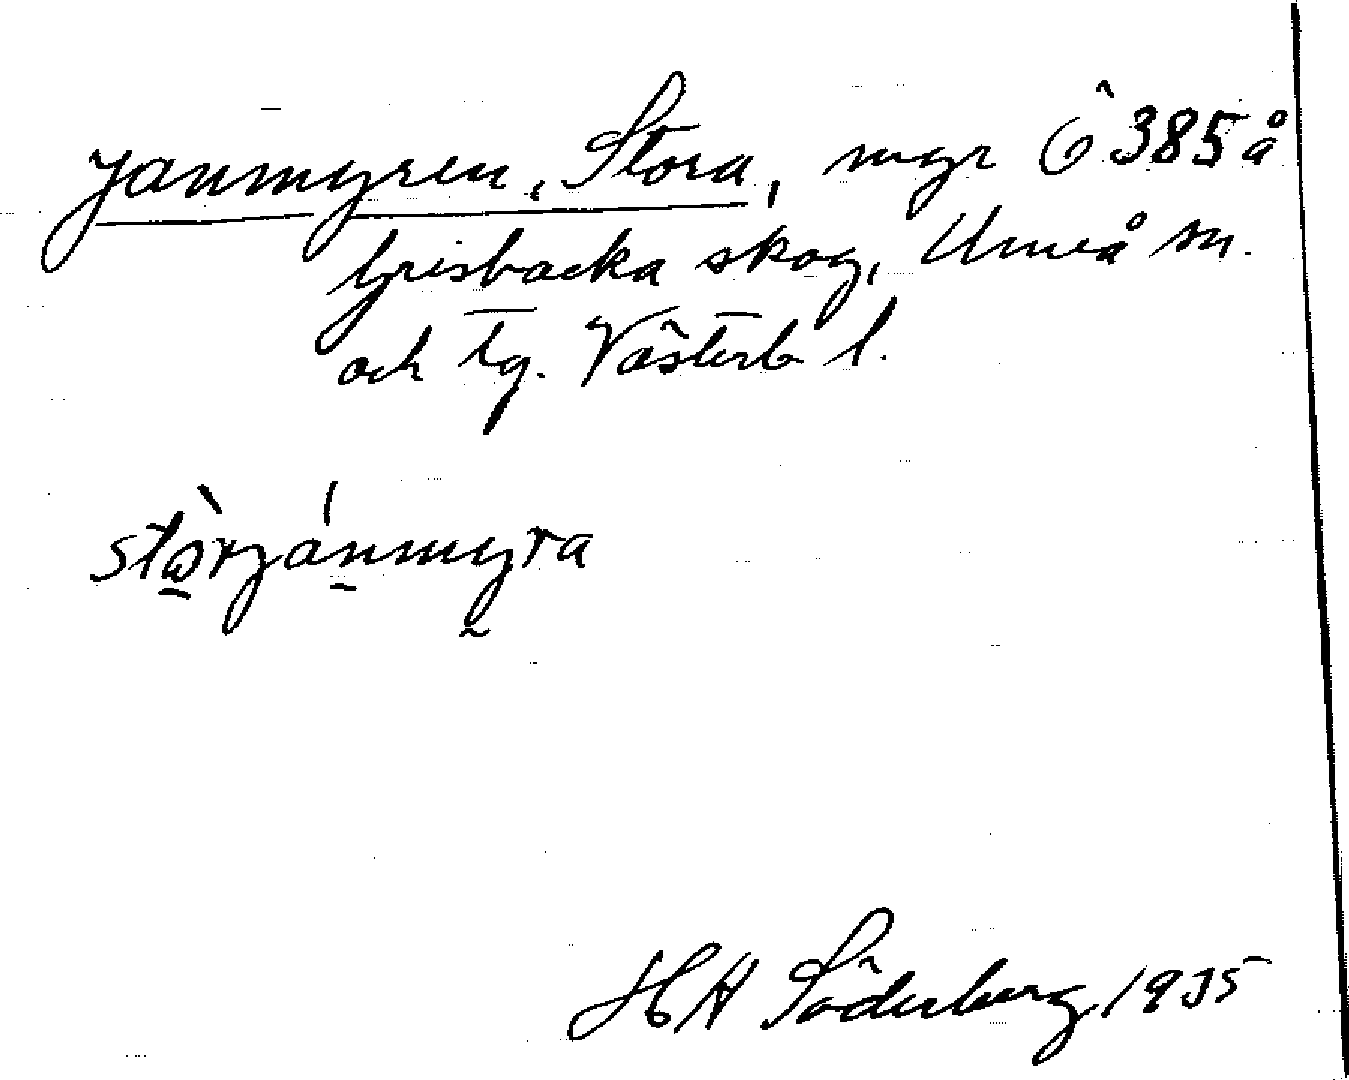 Janmyren, Stora, myr Ö 385 å
Grisbacka skog, Umeå sn.
och tg. Västerb l.
stòrjánmyra
H A Söderberg 1935